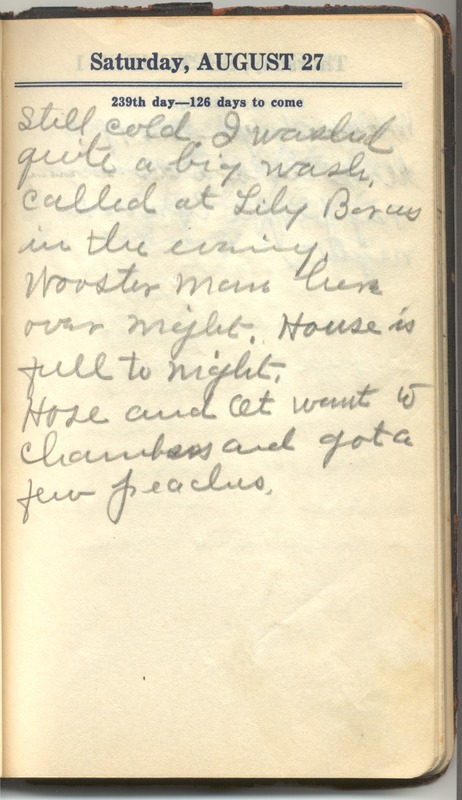 Saturday, AUGUST 27
239th day—126 days to come
Still cold I washed
quite a big wash.
called at Lily
in the evening.
Wooster Man here
over night. House is
full to night.
Hose and went to
Chambers and got a
few peaches.